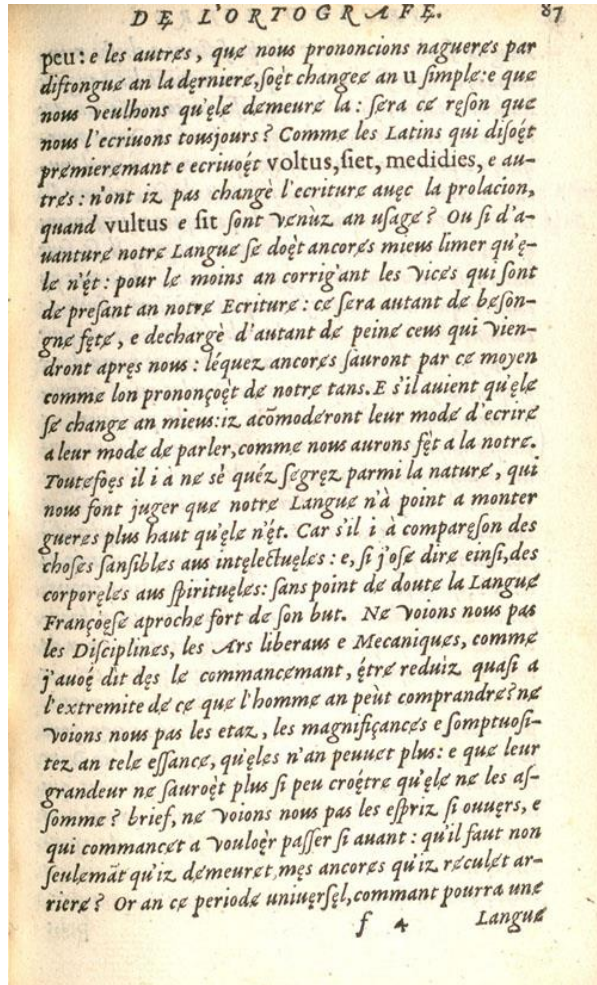 DE̜ L'ORTOGRAFE̜. 87
peu: e les autrɇs, que nous prononcions naguerɇs par
diftonguɇ an la dęrnierɇ, soȩ̀t changeɇ an u simplɇ: e que
nous veulhons qu'ęlɇ dɇmeurɇ la: sɇra cɇ ręson que
nous l'ecriuons tousjours? Commɇ les Latins qui disoȩ́t
prɇmierɇmant e ecriuoȩ́t voltus, siet, medidies, e au-
trɇs: n'ont iz pas changè l'ecriturɇ auęc la prolacion,
quand vultus e sit sont vɇnùz an usagɇ? Ou si d'a-
uanturɇ notrɇ Languɇ sɇ doȩ̀t ancorɇs mieus limer qu'ę-
lɇ n'ȩ́t: pour lɇ moins an corrigɇant les vicɇs qui sont
dɇ presant an notrɇ Ecriturɇ: cɇ sɇra autant dɇ bɇson-
gnɇ fętɇ, e dechargè d'autant dɇ peinɇ ceus qui vien-
dront apręs nous: léquez ancorɇs sauront par cɇ moyen
commɇ lon prononçoȩ̀t dɇ notrɇ tans. E s'il auient qu'ęlɇ
sɇ changɇ an mieus: iz acõmodɇront leur modɇ d'ecrirɇ
a leur modɇ dɇ parler, commɇ nous aurons fęt a la notrɇ.
Toutɇfoęs il i à nɇ sè quéz sɇgręz parmi la naturɇ, qui
nous font juger quɇ notrɇ Languɇ n'à point a monter
guerɇs plus haut qu'ęlɇ n'ȩ́t. Car s'il i à comparęson des
chosɇs sansiblɇs aus intęlectuęlɇs: e, si j'osɇ dirɇ einsi, des
corporęlɇs aus spirituęlɇs: sans point dɇ doutɇ la Languɇ
Françoęsɇ aprochɇ fort dɇ son but. Nɇ voions nous pas
les Disciplinɇs, les Ars liberaus e Mecaniquɇs, commɇ
j'auoȩ́ dit dęs lɇ commancɇmant, ȩ́trɇ reduiz quasi a
l'extremite dɇ cɇ quɇ l'hommɇ an peùt comprandrɇ? nɇ
voions nous pas les etaz, les magnifiçancɇs e somptuosi-
tez an telɇ essancɇ, qu'ęlɇs n'an peuuɇt plus: e quɇ leur
grandeur nɇ sauroȩ̀t plus si peu croȩ́trɇ qu'ęlɇ nɇ les as-
sommɇ? brief, nɇ voions nous pas les espriz si ouuęrs, e
qui commancɇt a vouloęr passer si auant: qu'il faut non
seulɇmãt qu'iz dɇmeurɇt, męs ancorɇs qu'iz rɇculɇt ar-
rierɇ? Or an cɇ periodɇ uniuęrsęl, commant pourra unɇ
f 4 Languɇ